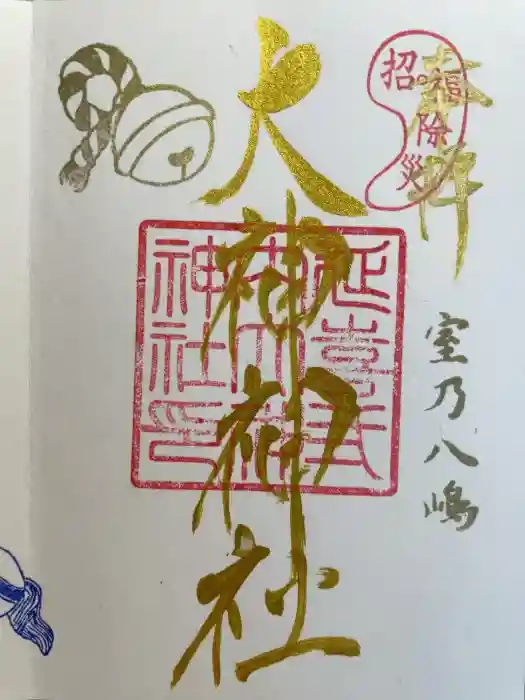 奉拝
招福
除災
室乃八嶋
大神神社
延喜式
内大神
神社印